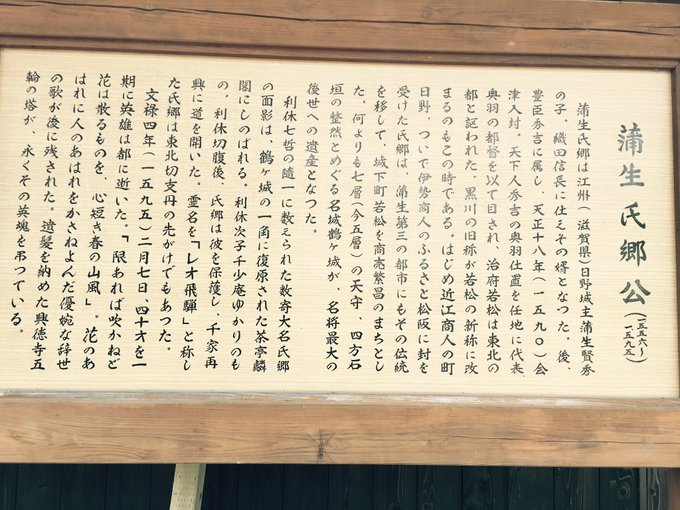 蒲生氏郷公(一五五六~一五九五)
蒲生氏郷は江州(滋賀県)日野城主蒲生賢秀
の子。織田信長に仕えその婿となつた。後、
豊臣秀吉に属し、天正十八年(一五九〇)会
津入封。天下人秀吉の奥羽仕置を任地に代表、
奥羽の都督を以て目され、治府若松は東北の
都と謳われた。黒川の旧称が若松の新称に改
まるのもこの時である。はじめ近江商人の町
日野、ついで伊勢商人のふるさと松阪に封を
受けた氏郷は、蒲生第三の都市にもその伝統
を移して、城下町若松を商売繁昌のまちとし
た。何よりも七層(今五層)の天守、四方石
垣の整然とめぐる名城鶴ヶ城が、名将最大の
後世への遺産となつた。
利休七哲の随一に数えられた数寄大名氏郷
の面影は、鶴ヶ城の一角に復原された茶亭麟
閣にしのばれる。利休次子千少庵ゆかりのも
の。利休切腹後、氏郷は彼を保護し、千家再
興に道を開いた。霊名を「レオ飛騨」と称し
た氏郷は東北切支丹の先がけでもあつた。
文禄四年(一五九五)二月七日、四十才を一
期に英雄は都に逝いた。「限あれば吹かねど
花は散るものを、心短き春の山風」。花のあ
はれに人のあはれをかさねよんだ優婉な辞世
の歌が後に残された。遺髪を納めた興徳寺五
輪の塔が、永くその英魂を弔つている。